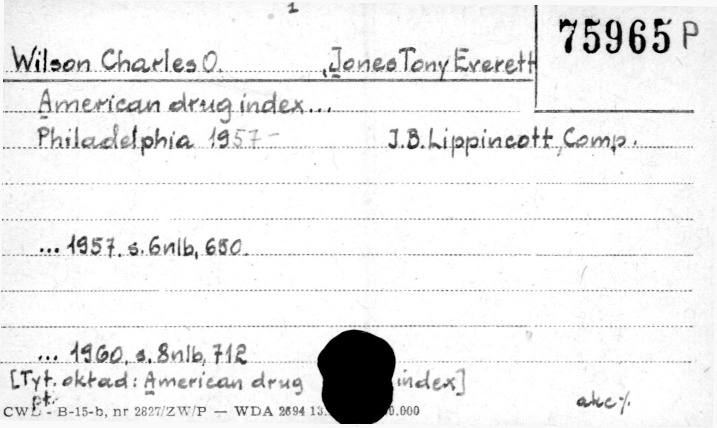 1
75965 P
Wilson Charles O. , Jones Tony Everett
American drug index...
Philadelphia 1957- J.B. Lippincott, Comp.
... 1957. s. 6nlb, 650.
... 1960, s. 8nlb, 712
[Tyt. okład: American drug index]
pt.
CWD - B-15-b, nr 2827/ZW/P — WDA 2694 13. 0.000